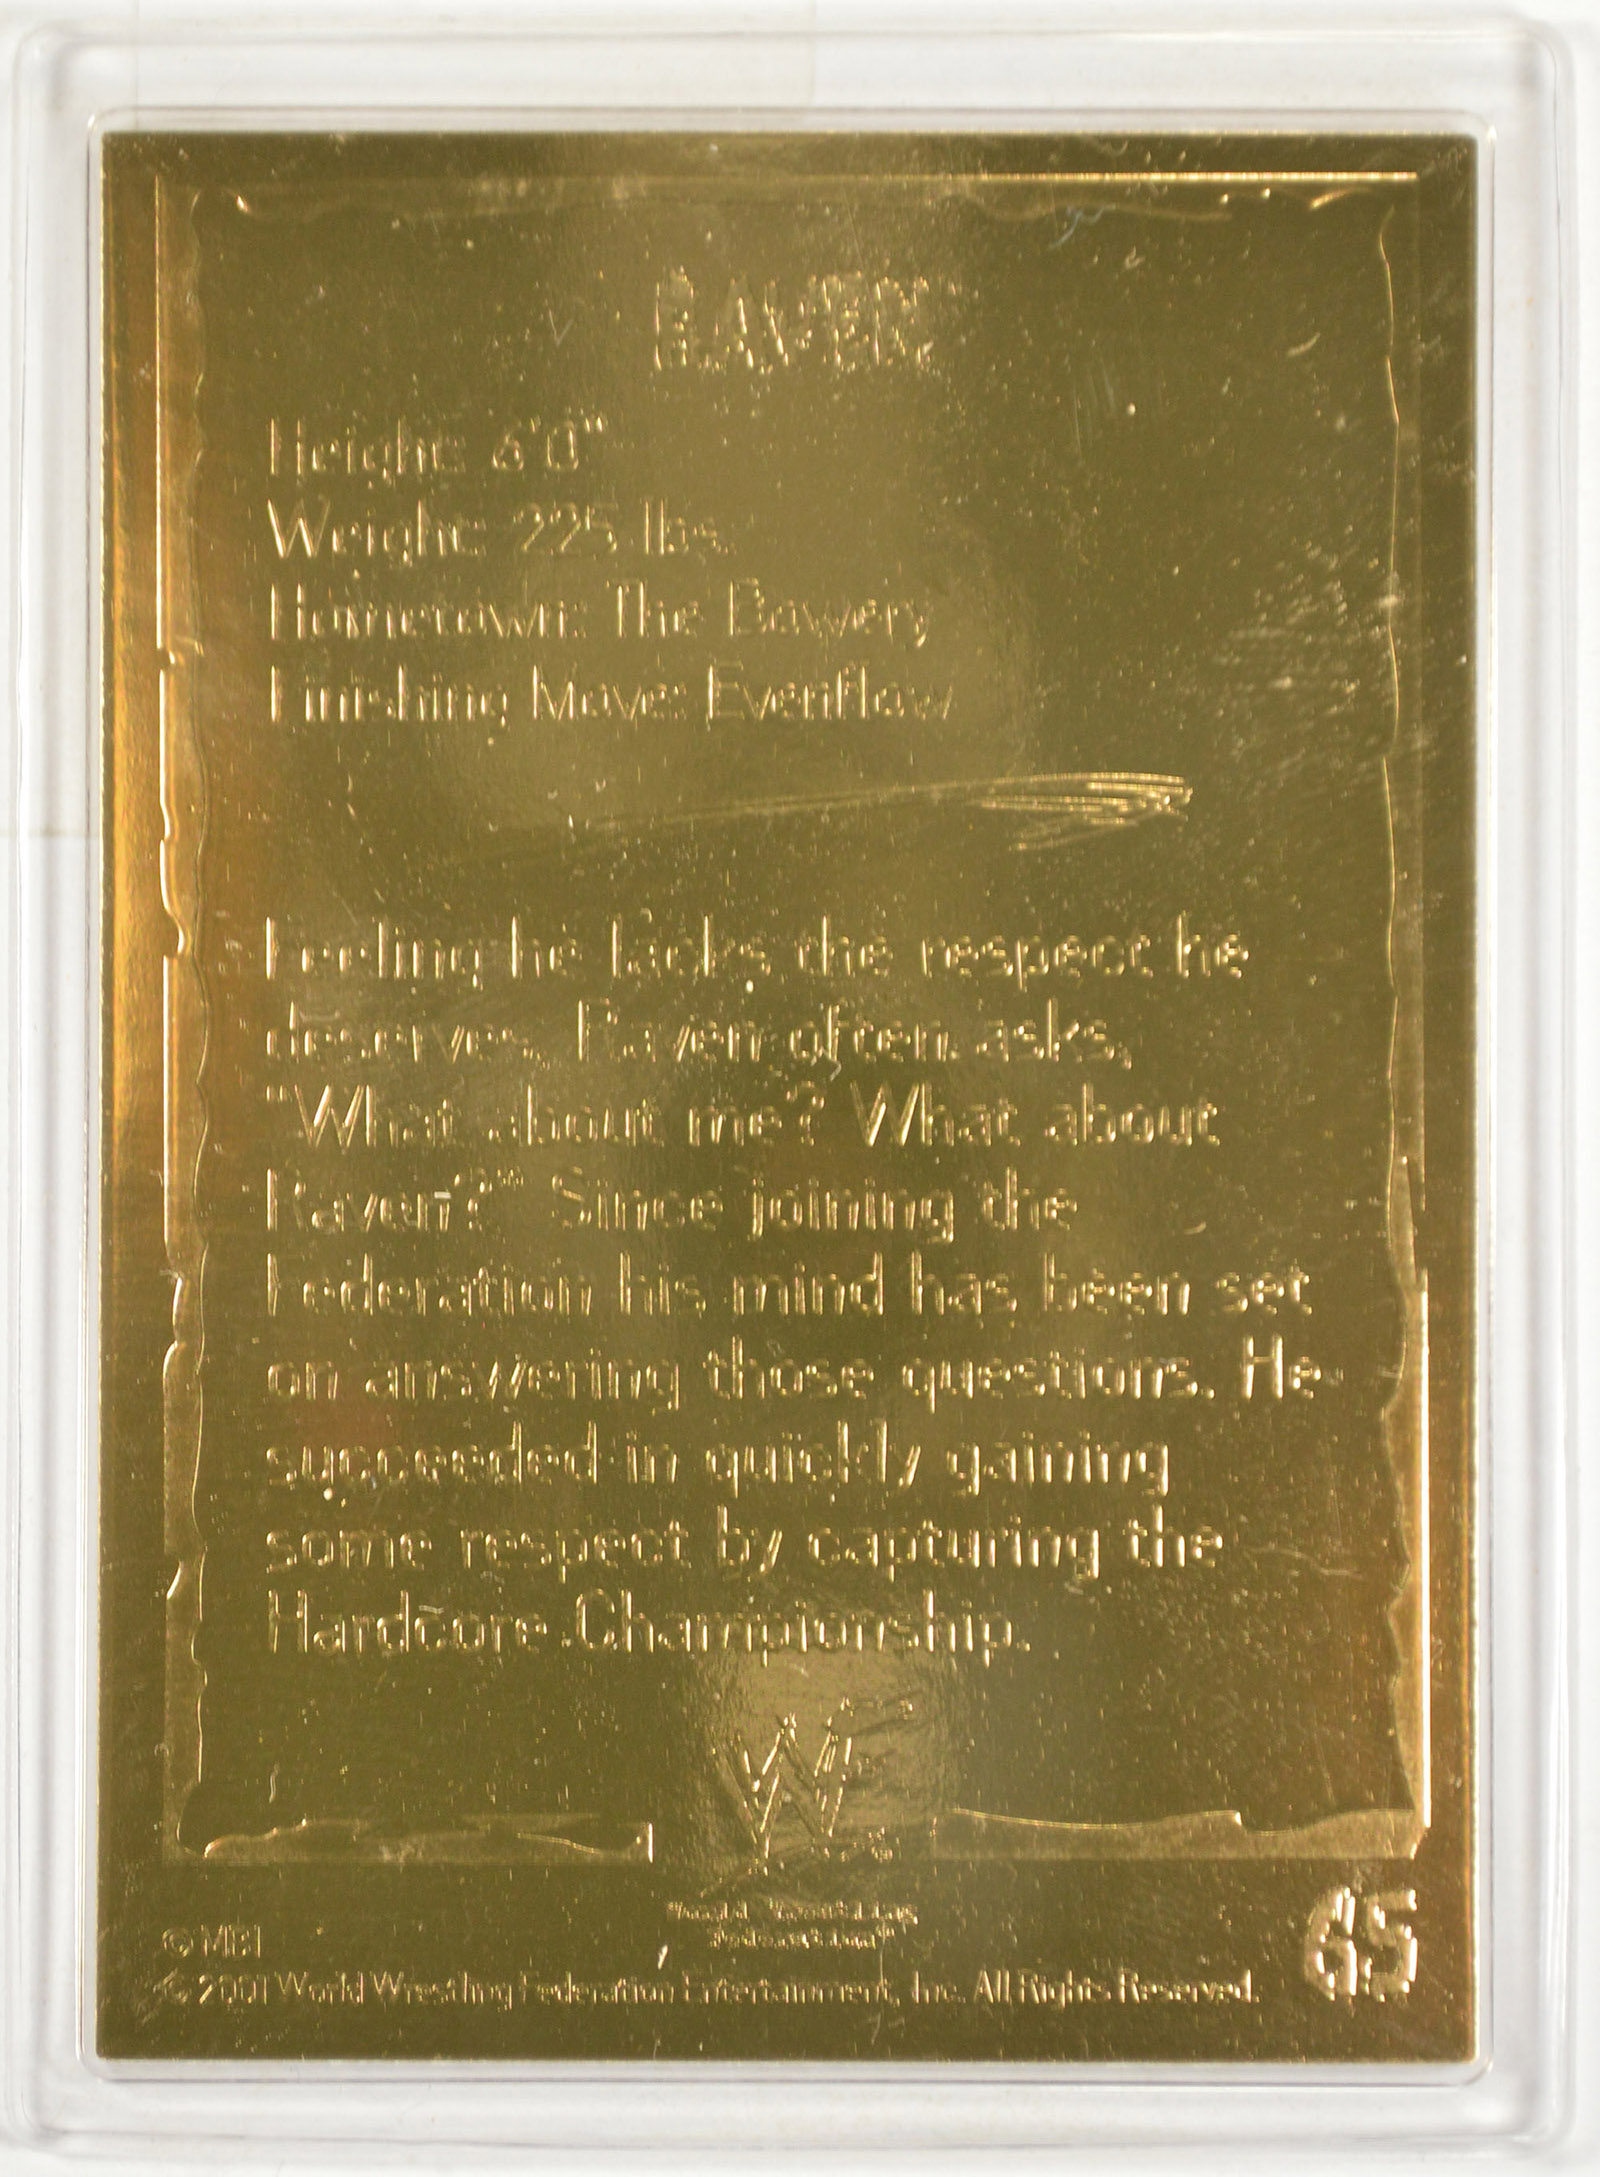 RAVEN
Height: 6'0"
Weight: 225 lbs.
Hometown: The Bowery
Finishing Move: Evenflow
Feeling he lacks the respect he
deserves, Raven often asks,
"What about me? What about
Raven?" Since joining the
Federation his mind has been set
on answering those questions. He
succeeded in quickly gaining
some respect by capturing the
Hardcore Championship.
W
World Wrestling
Federation
© MBI
© 2001 World Wrestling Federation Entertainment, Inc. All Rights Reserved.
65